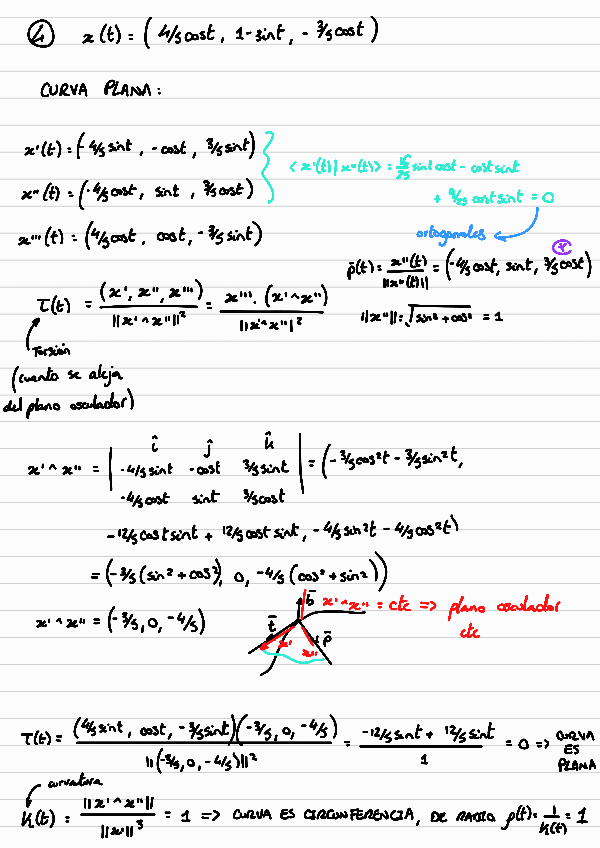 ④ x(t) = (4/5 cost, 1-sint, -3/5 cost)
CURVA PLANA:
x'(t) = (-4/5 sint, -cost, 3/5 sint)
x''(t) = (-4/5 cost, sint, 3/5 cost)
<x'(t)|x''(t)> = 16/25 sint cost - cost sint
+ 9/25 cost sint = 0
ortogonales
x'''(t) = (4/5 cost, cost, -3/5 sint)
p̄(t) = x''(t)/||x''(t)|| = (-4/5 cost, sint, 3/5 cost)
||x''|| = √(sin² + cos²) = 1
τ(t) = (x', x'', x''')/||x' ∧ x''||² = x''' · (x' ∧ x'')/||x' ∧ x''||²
Torsión
(cuanto se aleja
del plano osculador)
x' ∧ x'' = | î ĵ k̂ |
| -4/5 sint -cost 3/5 sint | = (-3/5 cos²t - 3/5 sin²t,
| -4/5 cost sint 3/5 cost |
-12/5 cost sint + 12/5 cost sint, -4/5 sin²t - 4/5 cos²t)
= (-3/5 (sin² + cos²), 0, -4/5 (cos² + sin²))
x' ∧ x'' = (-3/5, 0, -4/5)
b̄ x' ∧ x'' = cte => plano osculador
cte
t̄ x' x'' p̄
τ(t) = (4/5 sint, cost, -3/5 sint)(-3/5, 0, -4/5)/||(-3/5, 0, -4/5)||² = -12/5 sint + 12/5 sint/1 = 0 => CURVA
ES
PLANA
curvatura
K(t) = ||x' ∧ x''||/||x'||³ = 1 => CURVA ES CIRCUNFERENCIA, DE RADIO ρ(t) = 1/K(t) = 1